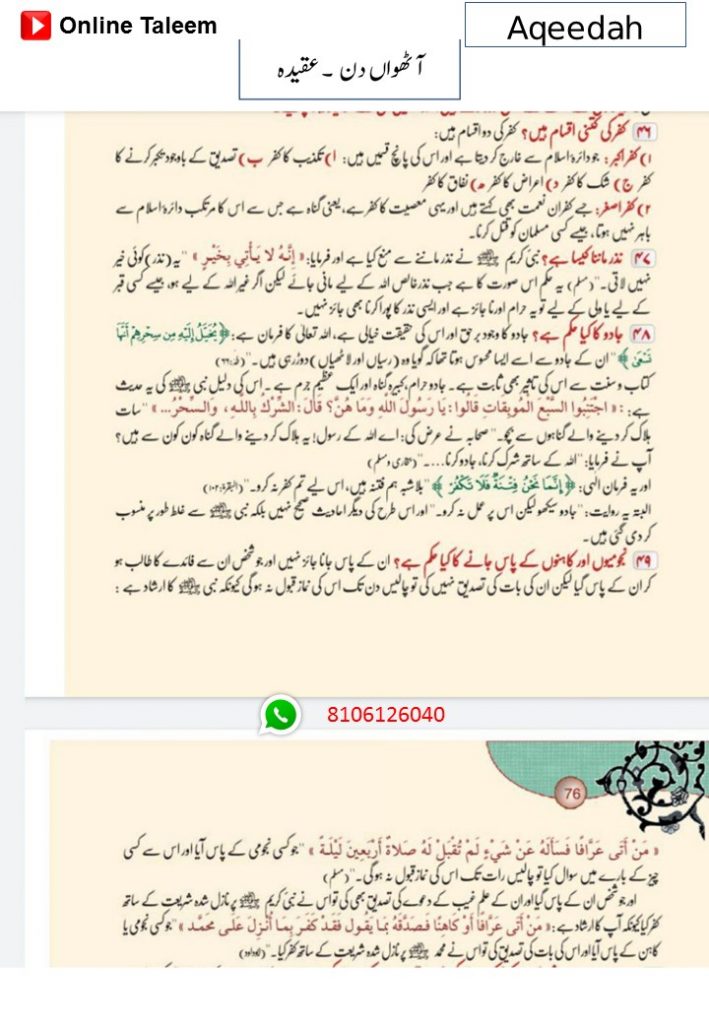 Online Taleem
Aqeedah
آٹھواں دن ۔ عقیدہ
۴۶ کفر کی کتنی اقسام ہیں؟ کفر کی دو اقسام ہیں:
۱) کفر اکبر: جو دائرۂ اسلام سے خارج کر دیتا ہے اور اس کی پانچ قسمیں ہیں: ا) تکذیب کا کفر ب) تصدیق کے باوجود تکبر کرنے کا
کفر ج) شک کا کفر د) اعراض کا کفر ھ) نفاق کا کفر
۲) کفر اصغر: جسے کفران نعمت بھی کہتے ہیں اور یہی معصیت کا کفر ہے، یعنی گناہ ہے جس سے اس کا مرتکب دائرۂ اسلام سے
باہر نہیں ہوتا، جیسے کسی مسلمان کو قتل کرنا۔
۴۷ نذر ماننا کیسا ہے؟ نبی کریم ﷺ نے نذر ماننے سے منع کیا ہے اور فرمایا: « إِنَّهُ لا يَأْتِي بِخَيْرٍ » "یہ (نذر) کوئی خیر
نہیں لاتی۔" (مسلم) یہ حکم اس صورت کا ہے جب نذر خالص اللہ کے لیے مانی جائے لیکن اگر غیر اللہ کے لیے ہو، جیسے کسی قبر
کے لیے یا ولی کے لیے تو یہ حرام اور ناجائز ہے اور ایسی نذر کا پورا کرنا بھی جائز نہیں۔
۴۸ جادو کا کیا حکم ہے؟ جادو کا وجود برحق اور اس کی حقیقت خیالی ہے، اللہ تعالیٰ کا فرمان ہے: ﴿ يُخَيَّلُ إِلَيْهِ مِن سِحْرِهِمْ أَنَّهَا
تَسْعَىٰ ﴾ "ان کے جادو سے اسے ایسا محسوس ہوتا تھا کہ گویا وہ (رسیاں اور لاٹھیاں) دوڑ رہی ہیں۔" (طٰہٰ:۶۶)
کتاب و سنت سے اس کی تاثیر بھی ثابت ہے۔ جادو حرام، کبیرہ گناہ اور ایک عظیم جرم ہے۔ اس کی دلیل نبی ﷺ کی یہ حدیث
ہے: « اجْتَنِبُوا السَّبْعَ الْمُوبِقَاتِ قَالُوا: يَا رَسُولَ اللَّهِ وَمَا هُنَّ؟ قَالَ: الشِّرْكُ بِاللَّهِ، وَالسِّحْرُ... » "سات
ہلاک کر دینے والے گناہوں سے بچو۔" صحابہ نے عرض کی: اے اللہ کے رسول! یہ ہلاک کر دینے والے گناہ کون کون سے ہیں؟
آپ نے فرمایا: "اللہ کے ساتھ شرک کرنا، جادو کرنا....۔" (بخاری و مسلم)
اور یہ فرمان الٰہی: ﴿ إِنَّمَا نَحْنُ فِتْنَةٌ فَلَا تَكْفُرْ ﴾ "بلاشبہ ہم فتنہ ہیں، اس لیے تم کفر نہ کرو۔" (البقرۃ:۱۰۲)
البتہ یہ روایت: "جادو سیکھو لیکن اس پر عمل نہ کرو۔" اور اس طرح کی دیگر احادیث صحیح نہیں بلکہ نبی ﷺ سے غلط طور پر منسوب
کر دی گئی ہیں۔
۴۹ نجومیوں اور کاہنوں کے پاس جانے کا کیا حکم ہے؟ ان کے پاس جانا جائز نہیں اور جو شخص ان سے فائدے کا طالب ہو
کر ان کے پاس گیا لیکن ان کی بات کی تصدیق نہیں کی تو چالیس دن تک اس کی نماز قبول نہ ہوگی کیونکہ نبی ﷺ کا ارشاد ہے :
8106126040
76
« مَنْ أَتَى عَرَّافًا فَسَأَلَهُ عَنْ شَيْءٍ لَمْ تُقْبَلْ لَهُ صَلاةُ أَرْبَعِينَ لَيْلَةً » "جو کسی نجومی کے پاس آیا اور اس سے کسی
چیز کے بارے میں سوال کیا تو چالیس رات تک اس کی نماز قبول نہ ہوگی۔" (مسلم)
اور جو شخص ان کے پاس گیا اور ان کے علم غیب کے دعوے کی تصدیق بھی کی تو اس نے نبی کریم ﷺ پر نازل شدہ شریعت کے ساتھ
کفر کیا کیونکہ آپ کا ارشاد ہے: « مَنْ أَتَى عَرَّافًا أَوْ كَاهِنًا فَصَدَّقَهُ بِمَا يَقُولُ فَقَدْ كَفَرَ بِمَا أُنْزِلَ عَلَى مُحَمَّد » "جو کسی نجومی یا
کاہن کے پاس آیا اور اس کی بات کی تصدیق کی تو اس نے محمد ﷺ پر نازل شدہ شریعت کے ساتھ کفر کیا۔" (ابوداود)